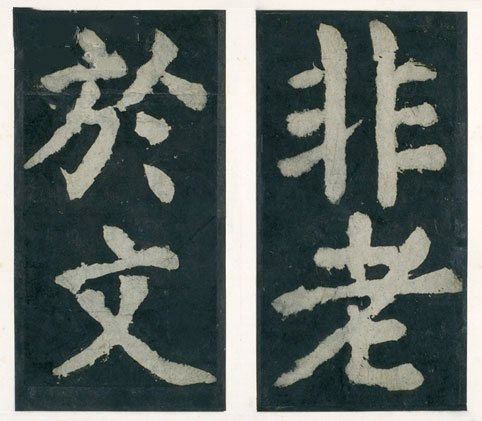 非老
於文